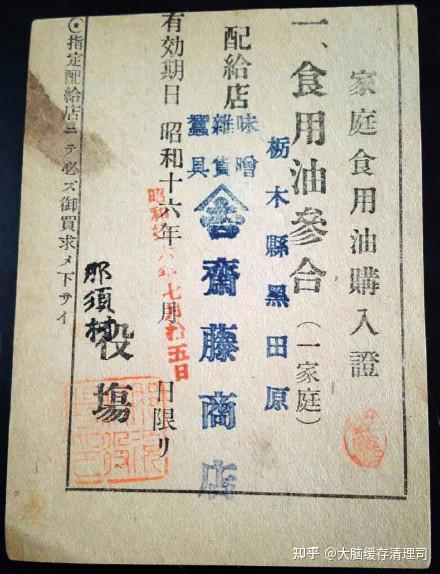 家庭食用油購入證
一、食用油參合(一家庭)
栃木縣黑田原
配給店
味噌
雜貨
蠶具
齋藤商店
有効期日 昭和十六年 月 日限リ
昭和 年七月拾五日
那須村役塲
⦿指定配給店ニテ必ズ御買求メ下サイ
知乎 @大脑缓存清理司